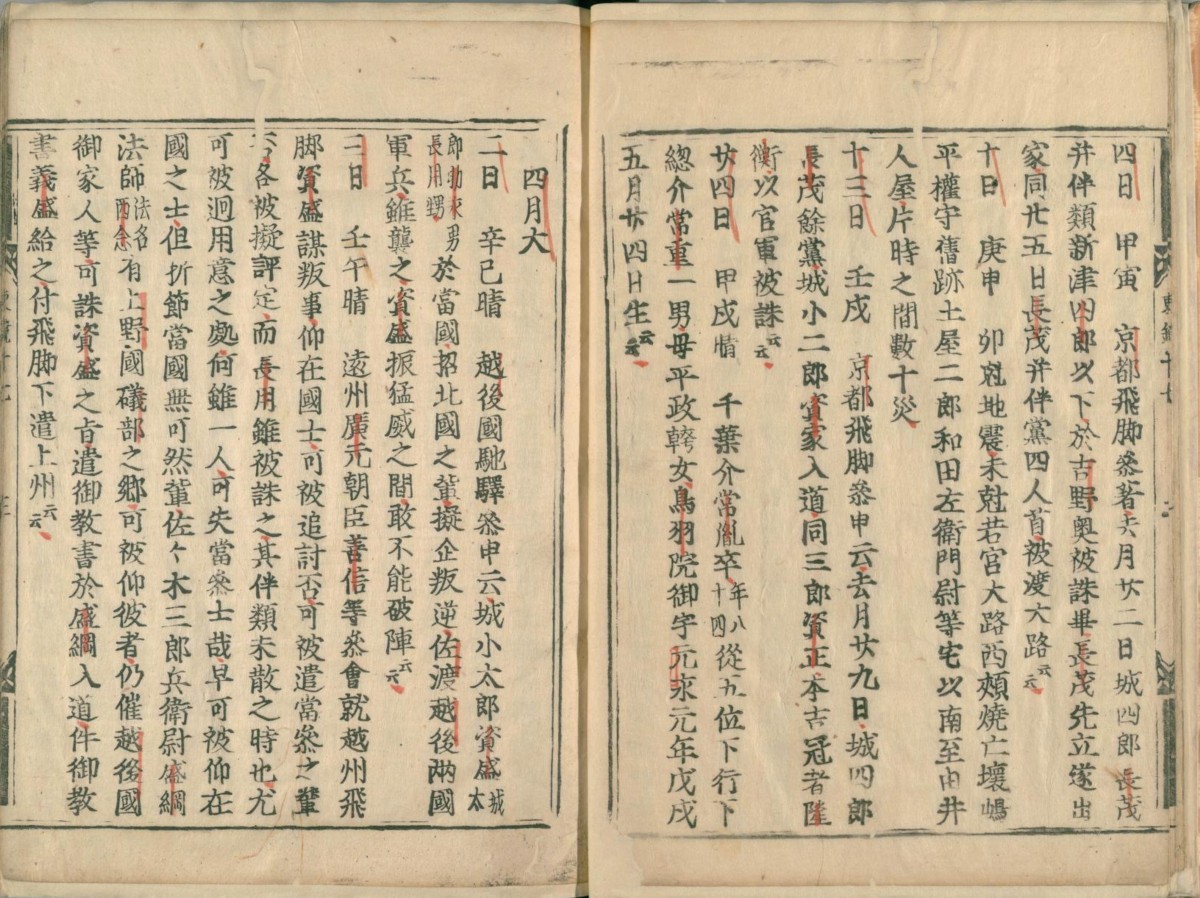 四日　甲寅　京都飛脚叅著去月廿二日城四郎長茂
并伴類新津四郎以下於吉野奥被誅畢長茂先立遂出
家同廿五日長茂并伴黨四人首被渡大路云云
十日　庚申　卯尅地震未尅若宮大路西頬燒亡壞嶋
平權守舊跡土屋二郎和田左衛門尉等宅以南至由井
人屋片時之間數十災
十三日　壬戌　京都飛脚叅申云去月廿九日城四郎
長茂餘黨城小二郎資家入道同三郎資正本吉冠者隆
衡以官軍被誅云云
廿四日　甲戌晴　千葉介常胤卒年八十四從五位下行下
總介常重一男母平政幹女鳥羽院御宇元永元年戊戌
五月廿四日生云云
東鑑十七
四月大
二日　辛巳晴　越後國馳驛叅申云城小太郎資盛城太
郎助永男長用甥於當國招北國之輩擬企叛逆佐渡越後兩國
軍兵雖襲之資盛振猛威之間敢不能破陣云云
三日　壬午晴　遠州廣元朝臣善信等叅會就越州飛
脚資盛謀叛事仰在國士可被追討否可被遣當叅之輩
否各被擬評定而長用雖被誅之其伴類未散之時也尤
可被迥用意之處何雖一人可失當叅士哉早可被仰在
國之士但折節當國無可然輩佐々木三郎兵衛尉盛綱
法師法名西念有上野國礒部之鄉可被仰彼者仍催越後國
御家人等可誅資盛之旨遣御教書於盛綱入道件御教
書義盛給之付飛脚下遣上州云云